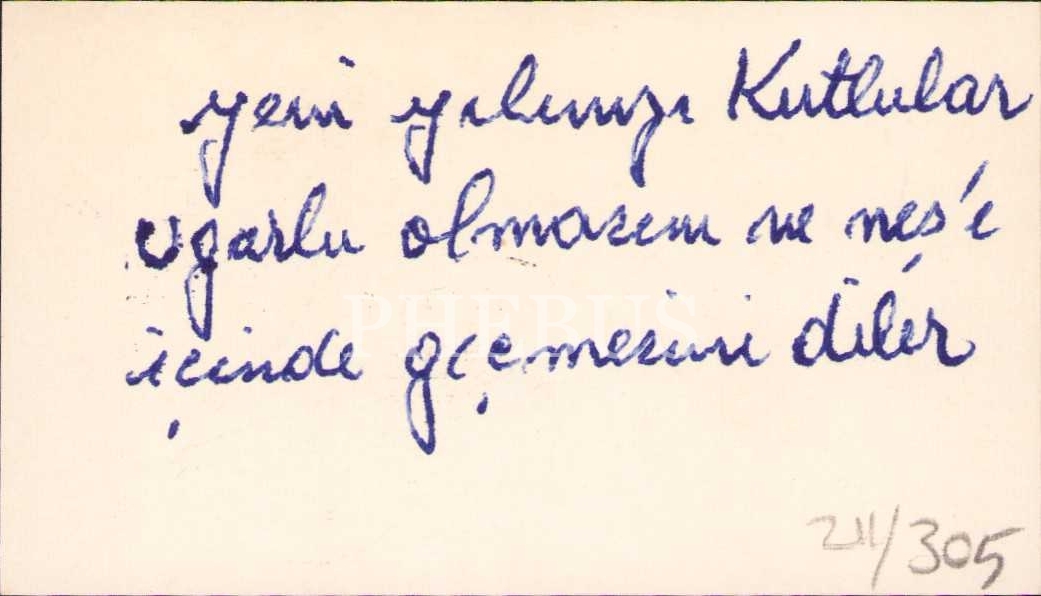 yeni yılınızı Kutlular
uğurlu olmasını ve neş'e
içinde geçmesini diler
PHEBUS
211/305